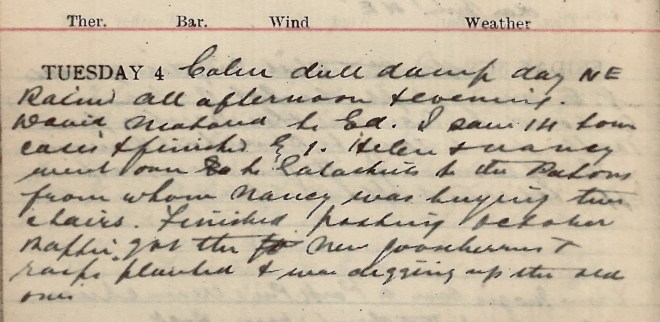 Ther. Bar. Wind Weather
TUESDAY 4 Calm dull damp day NE
Rained all afternoon & evening.
David motored to Ed. I saw 14 town
cases & finished E 1. Helen & Nancy
went over to Galashiels to the
from whom Nancy was buying two
chairs. Finished posting October
got the new gooseberries &
rasps planted & was digging up the old
ones